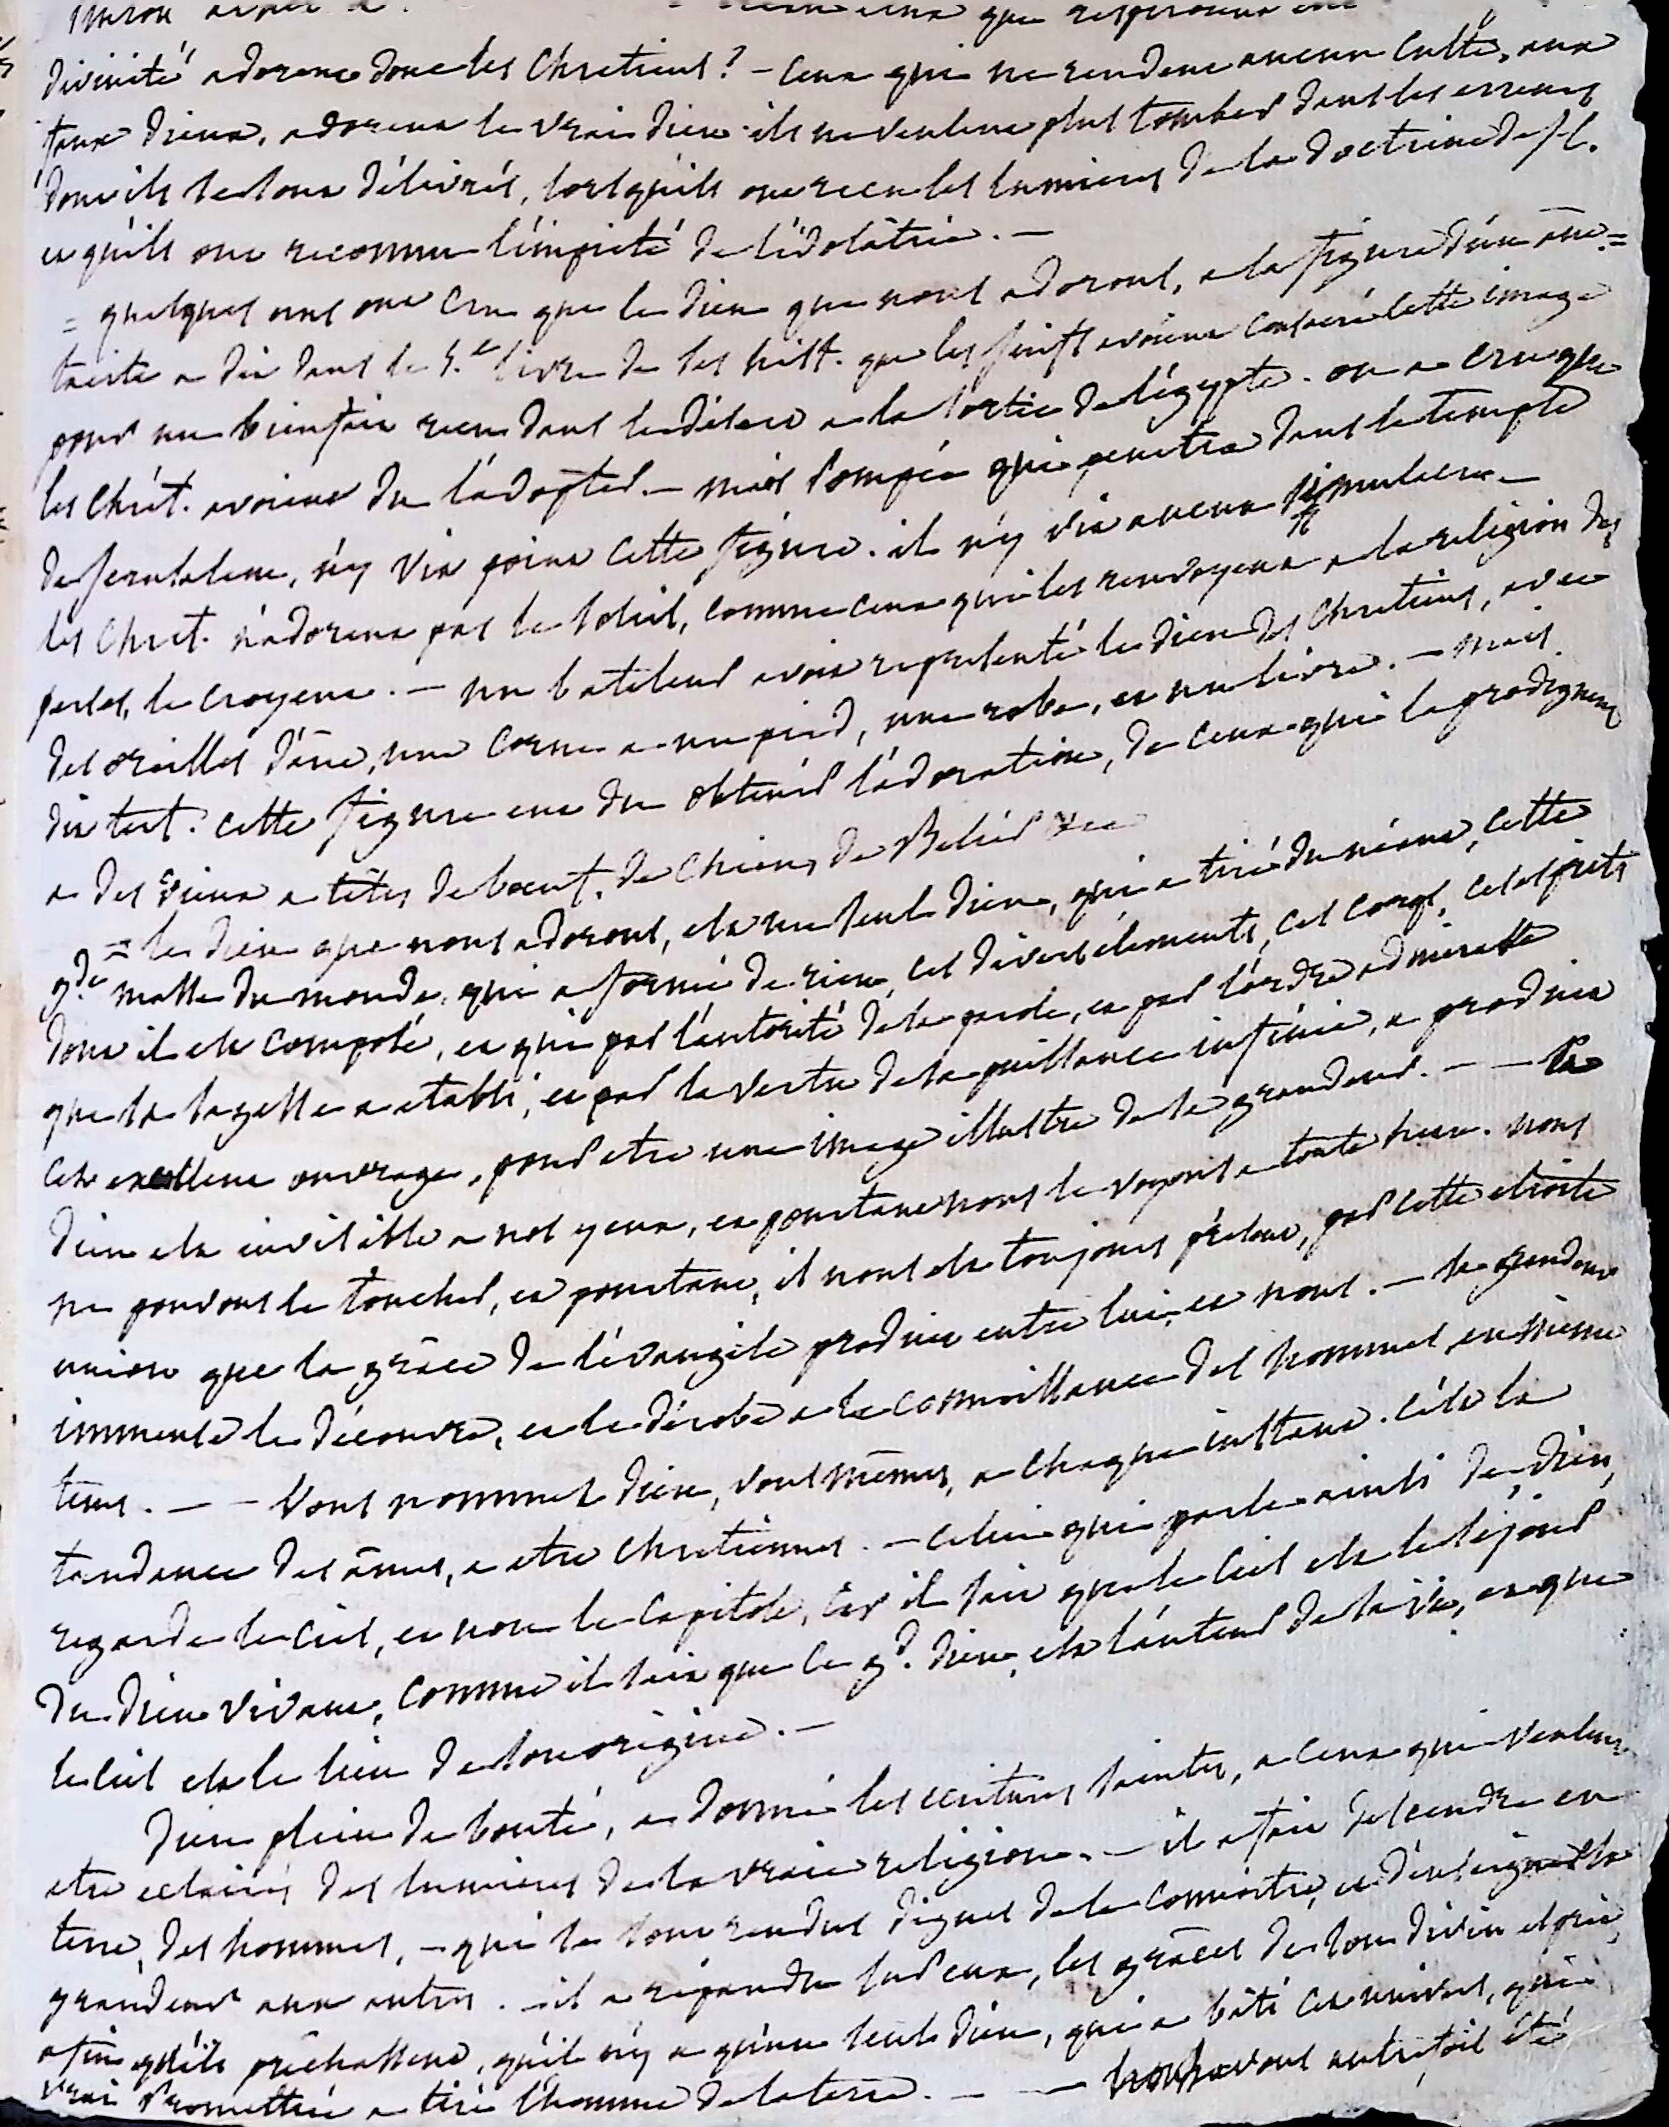 divinité adorent donc les Chretiens? – Ceux qui ne rendent aucun Culte, aux
faux dieux, adorent le vrai dieu. ils ne veulent plus tomber dans les erreurs
dont ils se sont délivrés, lorsqu'ils ont recu les lumieres de la doctrine de J. C.
et qu'ils ont reconnu l'impieté de l'idolatrie. –
= quelques uns ont cru que le dieu que nous adorons, a la figure d'un âne =
tacite a dit dans le 5.e livre de ses hist. que les juifs avoient consacré cette image
pour un bienfait recu dans le désert a la sortie de l'égypte. on a cru que
les chrét. avoient du l'adopter. – mais Pompée qui penetra dans le temple
de Jerusalem, n'y vit point cette figure. il n'y vit aucun simulacre –
les Chret. n'adorent pas le soleil, comme ceux qui les renvoyent a la religion des
perses, le croyent. – un bateleur avoit representé le dieu des Chretiens, avec
des oreilles d'âne, une corne a un pied, une robe, et un livre. – mais
dit tert. cette figure eut du obtenir l'adoration, de ceux qui la prodiguent
a des dieux a têtes de boeuf, de chien, de Belier &ca
= le dieu que nous adorons, est un seul dieu, qui a tiré du néant, cette
gde masse du monde, qui a formé de rien, ces divers élements, ces corps, ces esprits
dont il est composé, et qui par l'autorité de sa parole, et par l'ordre admirable
que sa sagesse a etabli, et par la vertu de sa puissance infinie, a produit
cet excellent ouvrage, pour etre une image illustre de sa grandeur. – – Ce
dieu est invisible a nos yeux, et pourtant nous le voyons a toute heure. nous
ne pouvons le toucher, et pourtant, il nous est toujours présent, par cette etroite
union que la grâce de l'évangile produit entre lui et nous. – sa grandeur
immense le découvre, et le dérobe a la connoissance des hommes en même
tems. – – Vous nommez dieu, vous mêmes, a chaque instant. C'est la
tendance des âmes, a etre chretiennes. – celui qui parle ainsi de dieu,
regarde le ciel, et non le Capitole, car il sait que le Ciel est le séjour
du dieu vivant, comme il sait que ce gd. dieu, est l'auteur de sa vie, et que
le ciel est le lieu de son origine. –
dieu plein de bonté, a donné les ecritures saintes, a ceux qui veulent
etre eclairés des lumieres de la vraie religion. – il a fait descendre en
terre, des hommes, – qui se sont rendus dignes de le connoitre, et d'enseigner sa
grandeur aux autres. – il a répandu sur eux, les grâces de son divin esprit,
afin qu'ils prêchassent, qu'il n'y a qu'un seul dieu, qui a bâti cet univers, qui
vrai Promethée a tiré l'homme de la terre. – – nous avons autrefois été